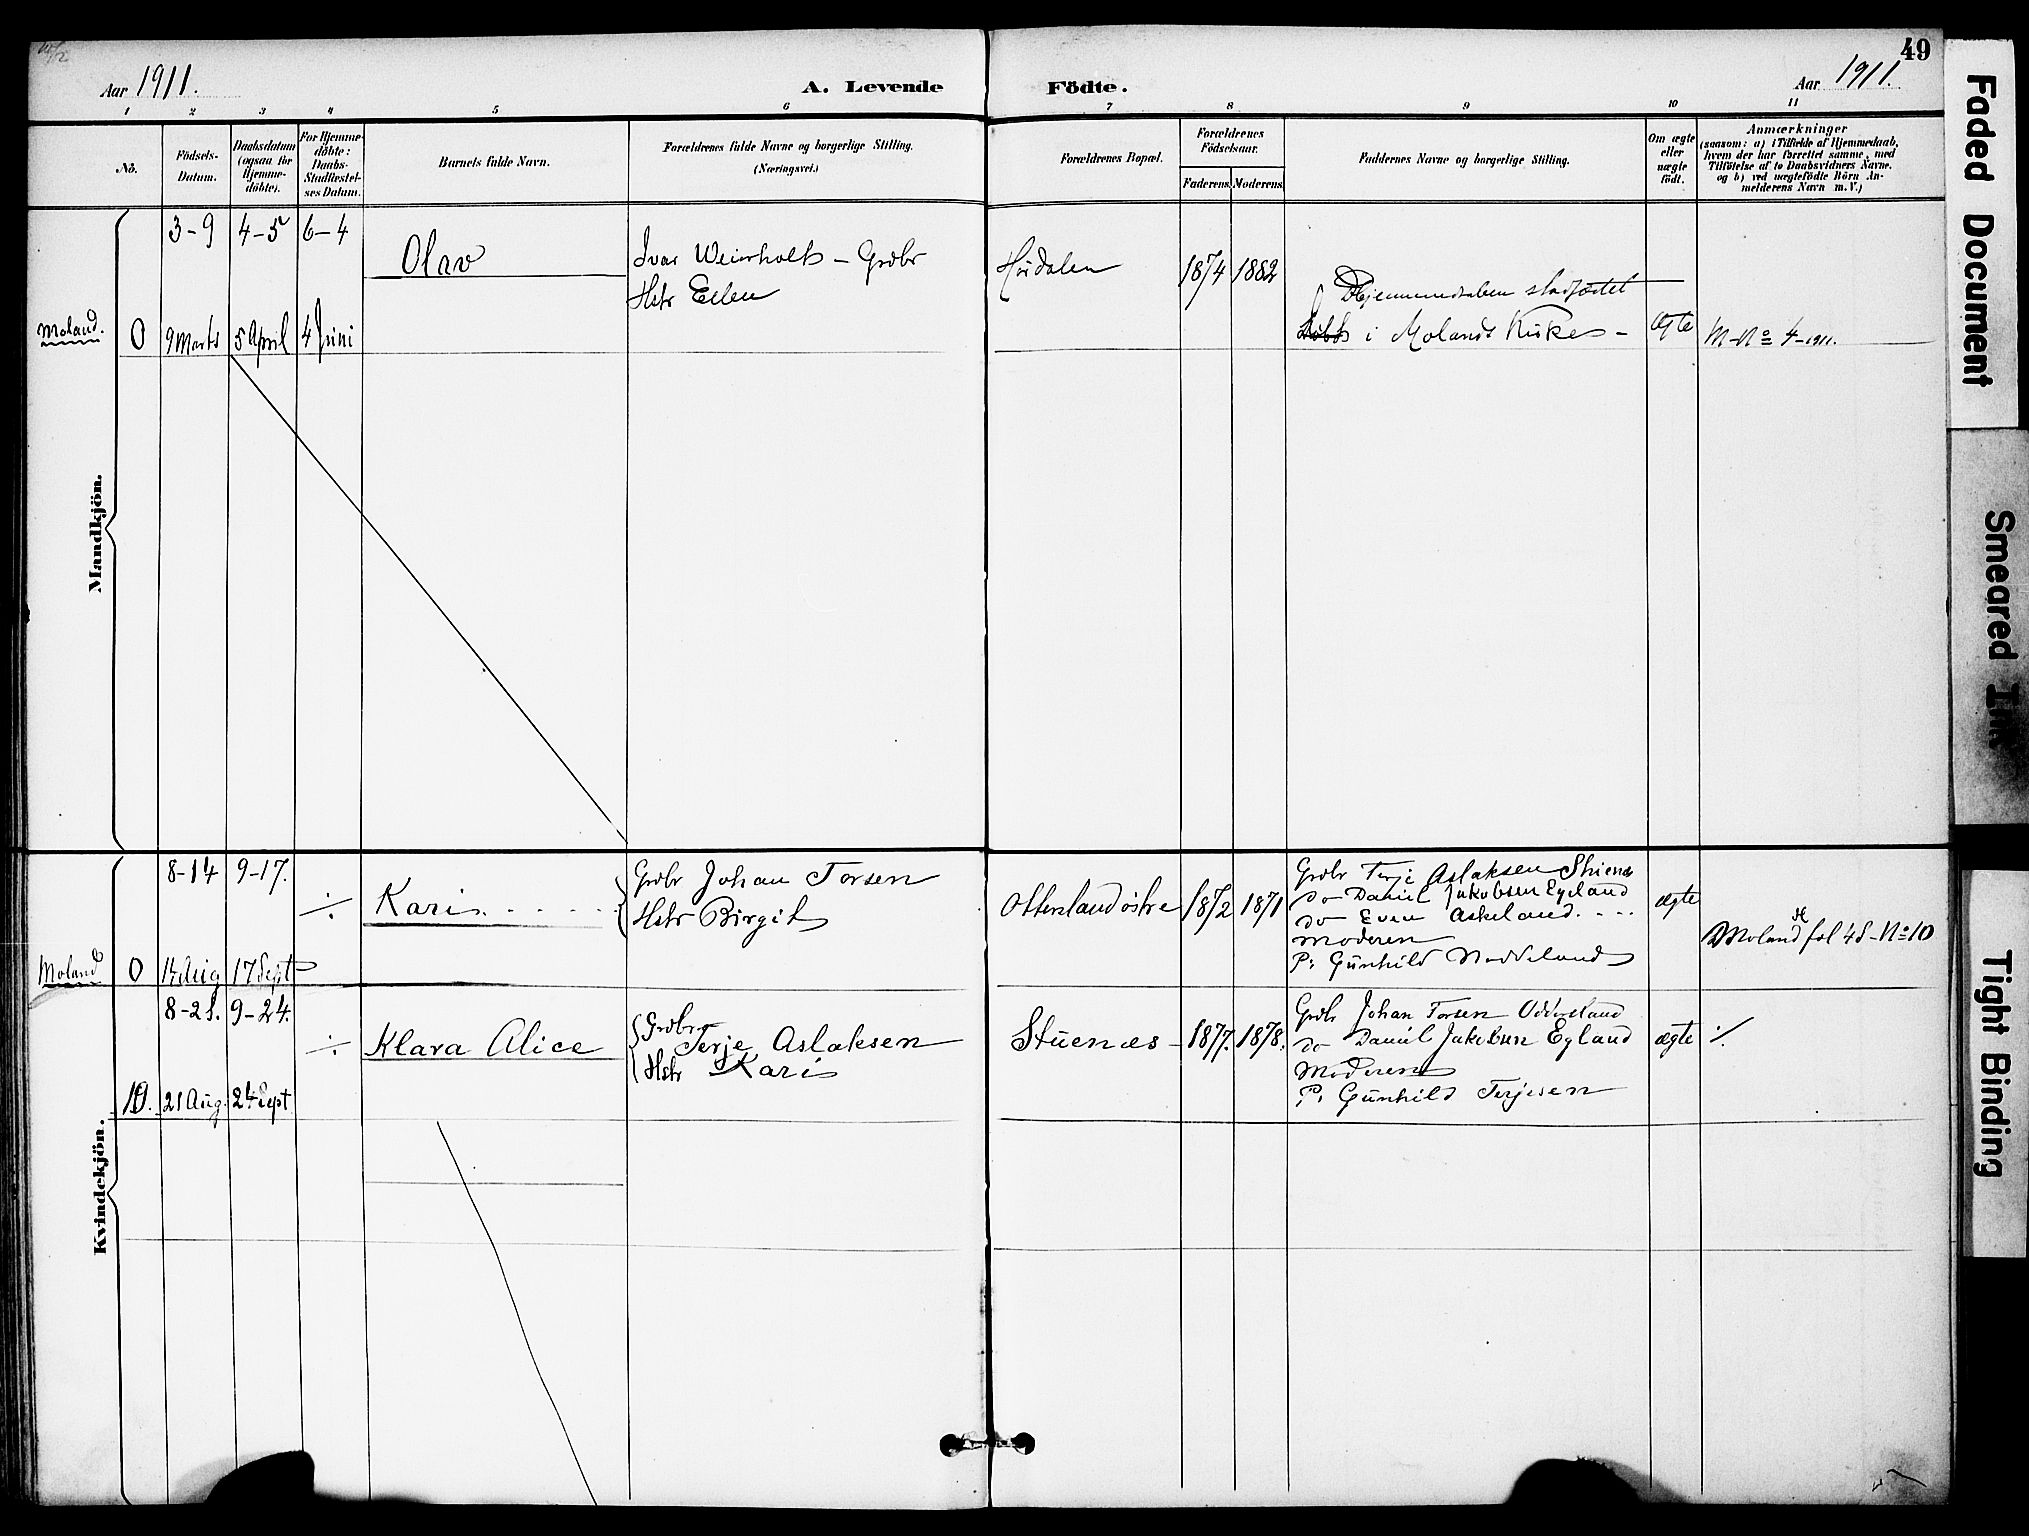 49
Aar 1911.
A. Levende Födte.
Aar 1911.
1 2 3 4 5 6 7 8 9 10 11
No.
Födsels-
Datum.
Daabsdatum
(ogsaa för
Hjemme-
döbte).
For Hjemme-
döbte:
Daabs-
Stadfæstel-
ses Datum.
Barnets fulde Navn.
Forældrenes fulde Navne og borgerlige Stilling.
(Næringsvei.)
Forældrenes Bopæl.
Forældrenes
Födselsaar.
Faderens. Moderens.
Faddernes Navne og borgerlige Stilling.
Om ægte
eller
uægte
födt.
Anmærkninger
(saasom: a) i Tilfælde af Hjemmedaab,
hvem der har forrettet samme, med
Tilföielse af to Daabsvidners Navne.
og b) ved uægtefödte Börn An-
melderens Navn m. V.)
Mandkjön.
3-9 4-5 6-4
Olav
Ivar Weierholt - Grdbr
Hstr Ellen
1874 1882
Hjemmedaaben stadfæstet
i Molands Kirke -
ægte
M-No 4-1911.
Moland.
0
9 Marts 5 April 4 Juni
Kvindekjön.
8-14 9-17.
÷
Kari
Grdbr Johan Torsen
Hstr Birgit
Otterslandöstre
1872 1871
Grdbr Terje Aslaksen
Do Daniel Jakobsen Egeland
do Even Askeland
Moderen
P: Gunhild
ægte
Moland fol 48-No 10
Moland
0
14 Aug 17 Sept
8-21. 9-24.
÷
Klara Alice
Grdbr
Terje Aslaksen
Hstr Kari
Stuenæs
1877. 1878.
Grdbr Johan Torsen
Do Daniel Jakobsen Egland
Moderen
P: Gunhild Terjesen
ægte
./.
10.
21 Aug. 24 Sept
Faded Document
Smeared Ink
Tight Binding